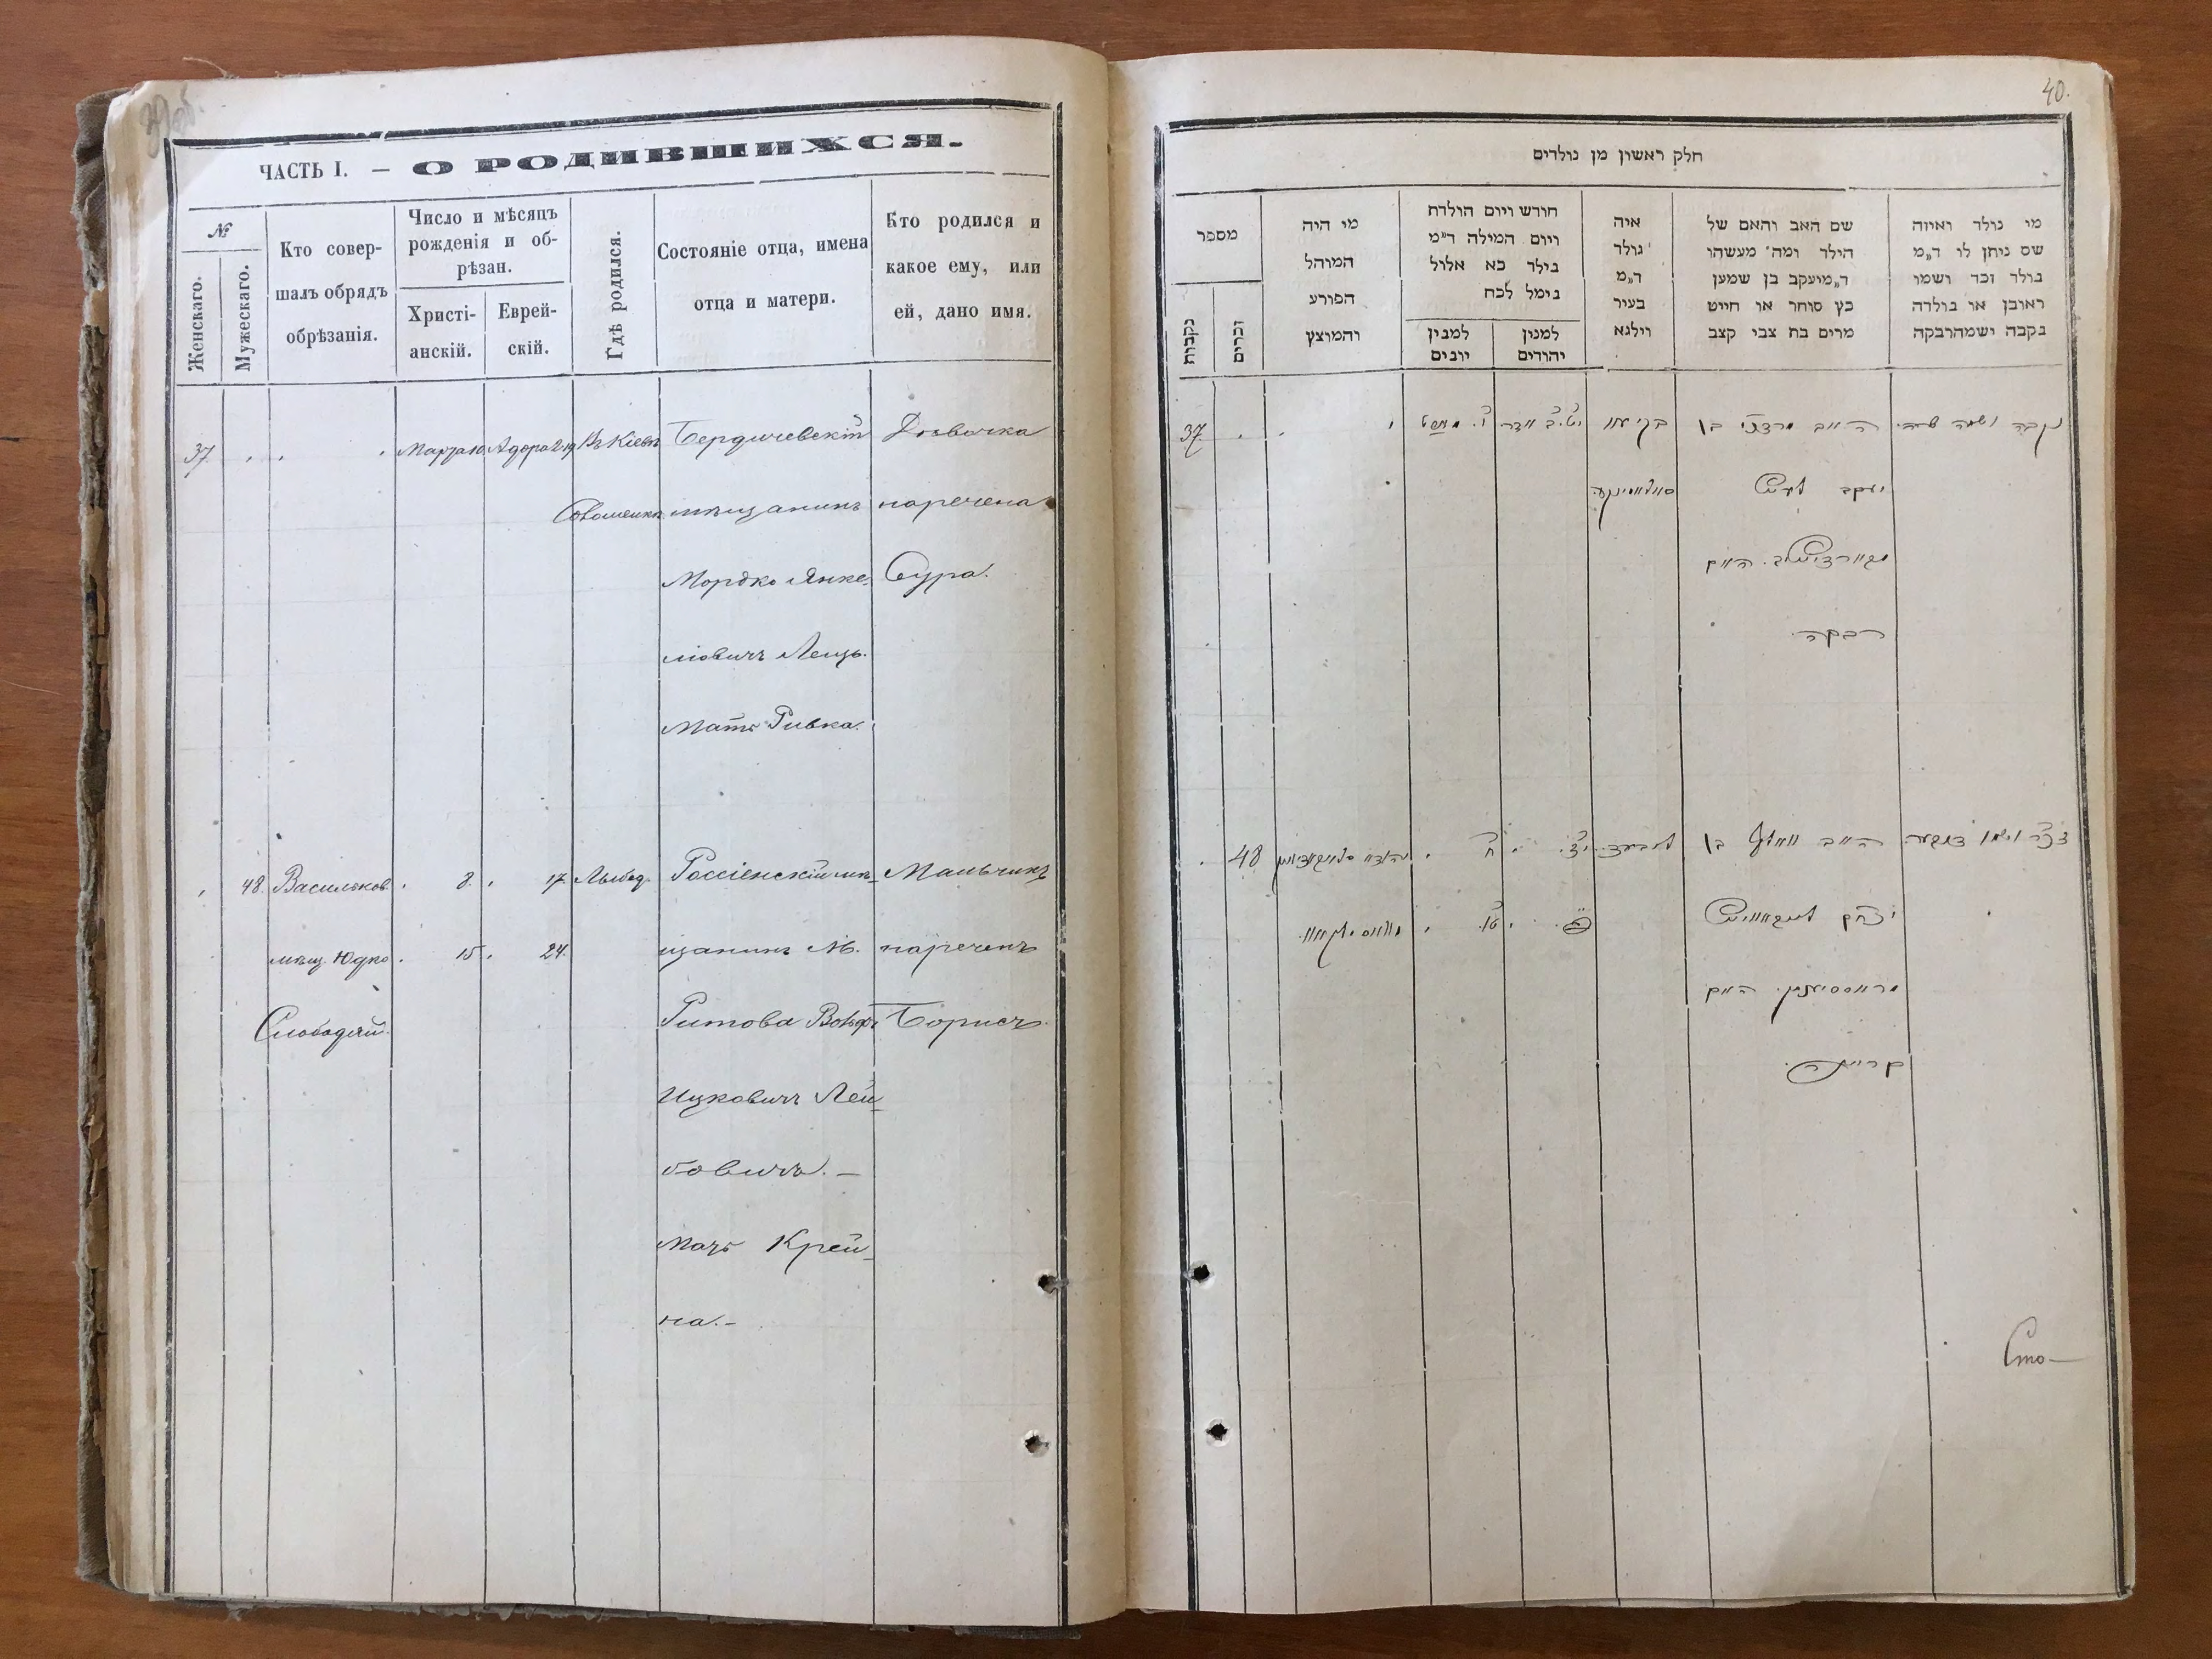 ЧАСТЬ I. — О РОДИВШИХСЯ.
№
Женскаго.
Мужескаго.
Кто совер-
шалъ обрядъ
обрѣзанія.
Число и мѣсяцъ
рожденія и об-
рѣзан.
Христі-
анскій.
Еврей-
скій.
Гдѣ родился.
Состояніе отца, имена
отца и матери.
Кто родился и
какое ему, или
ей, дано имя.
37.
Марта 10
Адора 2. 19
Въ Кіевѣ
Бердичевскій
мѣщанинъ
Мордко Янке-
ліовичъ Лещъ.
Мать Ривка.
Дѣвочка
наречена
Сура.
48.
Васильков.
мѣщ. Юдко
Слободяй.
8.
15.
17
24.
Лыбед.
Россіенскій мѣ-
щанинъ М.
Ритова Вольфъ
Ицковичъ Лей-
бовичъ. —
Мать Крей-
на. —
Мальчикъ
нареченъ
Борисъ.
40.
חלק ראשון מן נולדים
מספר
נקבות
זכרים
מי היה
המוהל
הפורע
והמוצץ
חורש ויום הולדת
ויום המילה ד״מ
בילד כא אלול
נימל לכח
למנין
יונים
למנין
יהודים
איה
נולד
ד״מ
בעיר
וילנא
שם האב והאם של
הילד ומה׳ מעשהו
ד״מ יעקב בן שמען
כץ סוחר או חייט
מרים בת צבי קצב
מי נולד ואיזה
שם ניתן לו ד״מ
נולד זכר ושמו
ראובן או נולדה
נקבה ישמה רבקה
37
נקבה ושמה שרה.
האב מרדכי בן
יעקב
האם
רבקה.
48
האב וואלף בן
יצחק לייבאוויטש
האם
קריינה.
Сто—